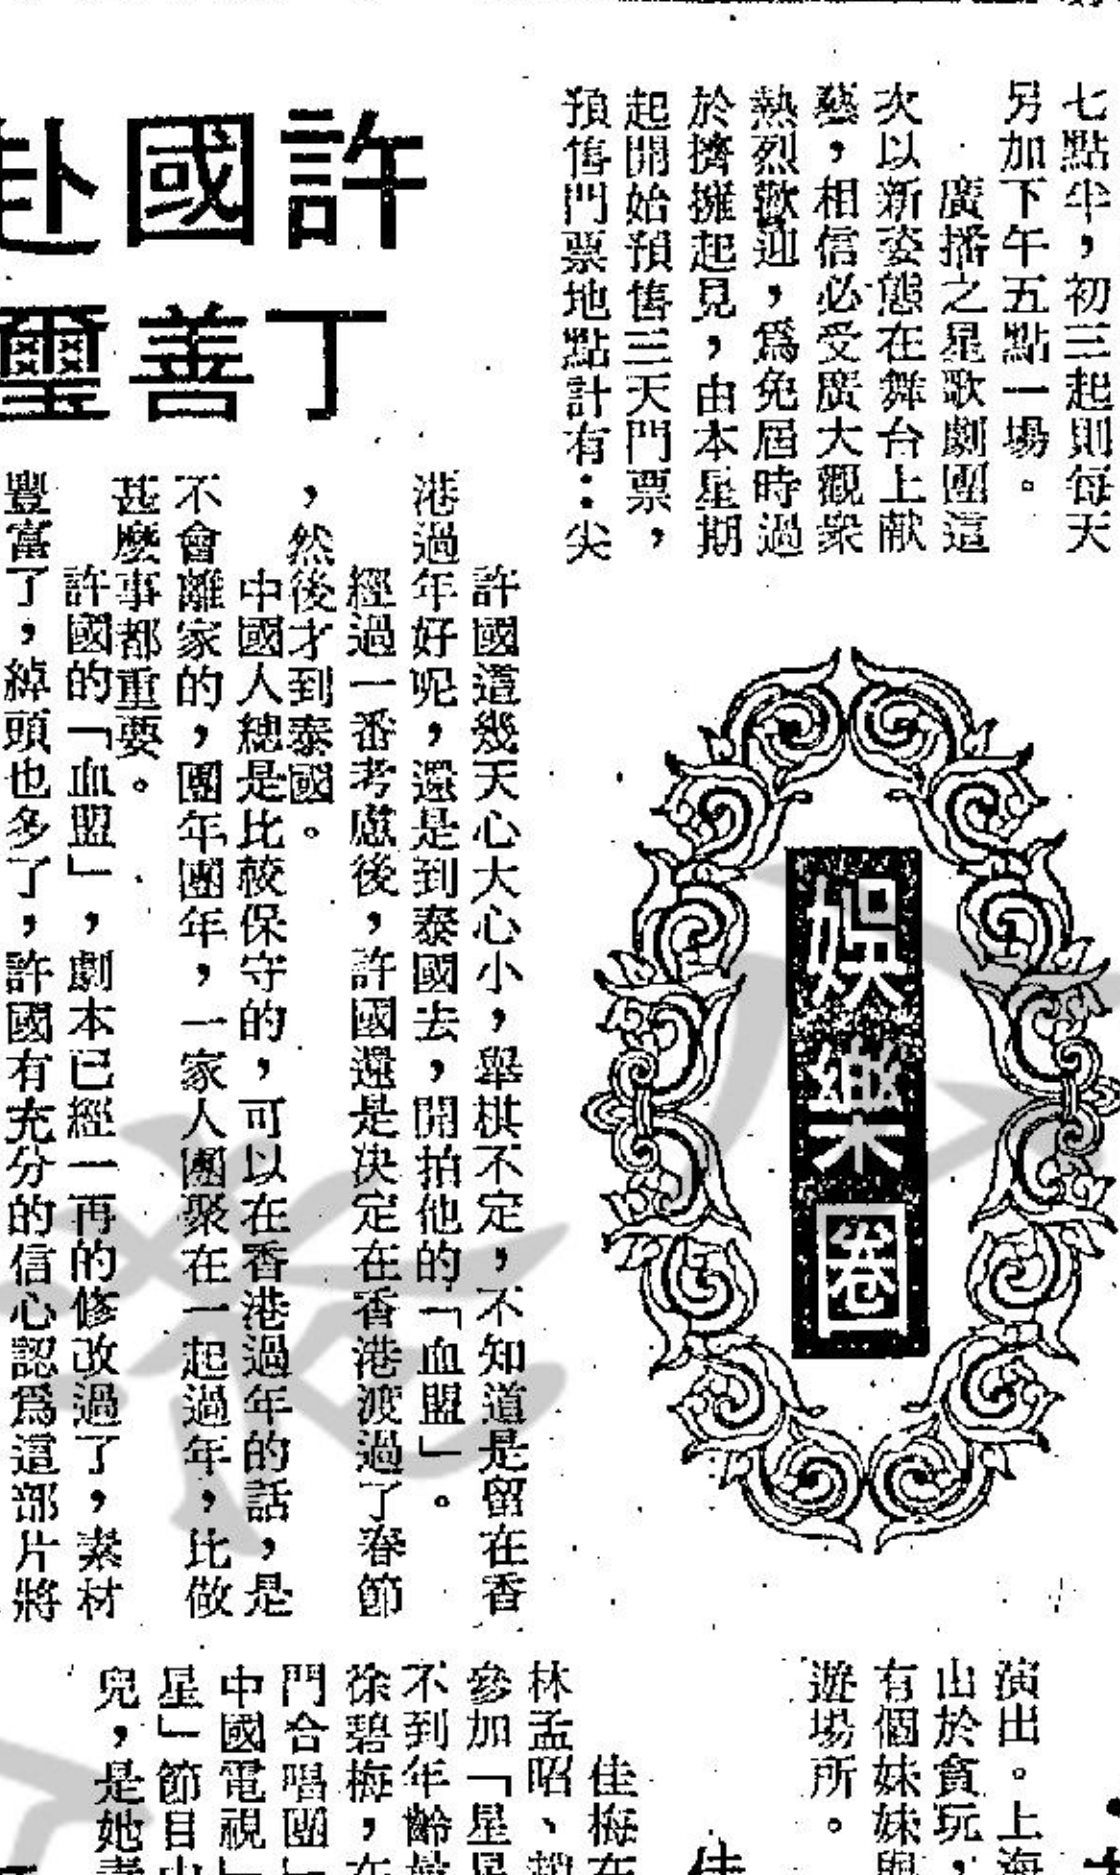 七點半，初三起則每天
另加下午五點一場。
廣播之星歌劇團這
次以新姿態在舞台上献
藝，相信必受廣大觀衆
熱烈歡迎，爲免屆時過
於擠擁起見，由本星期
起開始預售三天門票，
預售門票地點計有：尖
娛樂圈
許國赴
丁善璽
許國這幾天心大心小，舉棋不定，不知道是留在香
港過年好呢，還是到泰國去，開拍他的「血盟」。
經過一番考慮後，許國還是決定在香港渡過了春節
，然後才到泰國。
中國人總是比較保守的，可以在香港過年的話，是
不會離家的，團年團年，一家人團聚在一起過年，比做
甚麼事都重要。
許國的「血盟」，劇本已經一再的修改過了，素材
豐富了，綽頭也多了，許國有充分的信心認爲這部片將
演出。上海
出於貪玩，
有個妹妹與
遊場所。
佳
佳梅在
林孟昭、趙
參加「星星
不到年齡最
徐碧梅，在
門合唱團」
中國電視」
星」節目中
兒，是她表